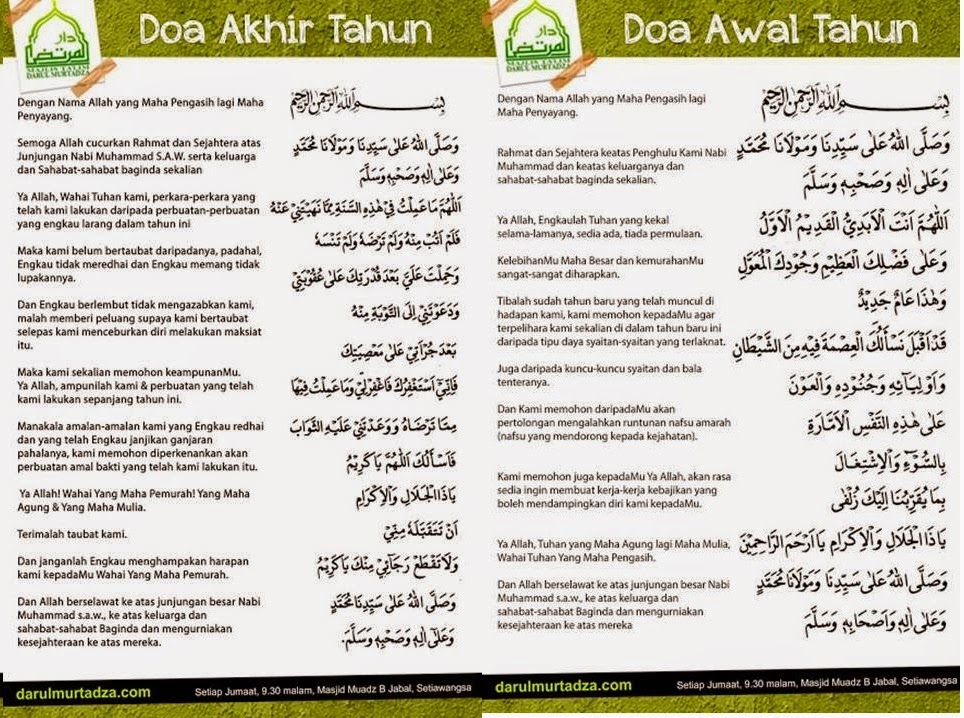 دار المرتضى
MAJLIS TA'LIM
DARUL MURTADZA
Doa Akhir Tahun
Dengan Nama Allah yang Maha Pengasih lagi Maha
Penyayang.
بِسْمِ اللهِ الرَّحْمٰنِ الرَّحِيْمِ
Semoga Allah cucurkan Rahmat dan Sejahtera atas
Junjungan Nabi Muhammad S.A.W. serta keluarga
dan Sahabat-sahabat baginda sekalian
وَصَلَّى اللهُ عَلٰى سَيِّدِنَا وَمَوْلَانَا مُحَمَّدٍ
وَعَلٰى اٰلِهٖ وَصَحْبِهٖ وَسَلَّمَ
Ya Allah, Wahai Tuhan kami, perkara-perkara yang
telah kami lakukan daripada perbuatan-perbuatan
yang engkau larang dalam tahun ini
اَللّٰهُمَّ مَا عَمِلْتُ فِيْ هٰذِهِ السَّنَةِ مِمَّا نَهَيْتَنِيْ عَنْهُ
Maka kami belum bertaubat daripadanya, padahal,
Engkau tidak meredhai dan Engkau memang tidak
lupakannya.
فَلَمْ اَتُبْ مِنْهُ وَلَمْ تَرْضَهُ وَلَمْ تَنْسَهُ
Dan Engkau berlembut tidak mengazabkan kami,
malah memberi peluang supaya kami bertaubat
selepas kami menceburkan diri melakukan maksiat
itu.
وَحَمِلْتَ عَلَيَّ بَعْدَ قُدْرَتِكَ عَلٰى عُقُوْبَتِيْ
وَدَعَوْتَنِيْ اِلَى التَّوْبَةِ مِنْهُ
بَعْدَ جُرْأَتِيْ عَلٰى مَعْصِيَتِكَ
Maka kami sekalian memohon keampunanMu.
Ya Allah, ampunilah kami & perbuatan yang telah
kami lakukan sepanjang tahun ini.
فَاِنِّيْ اَسْتَغْفِرُكَ فَاغْفِرْلِيْ وَمَا عَمِلْتُ فِيْهَا
Manakala amalan-amalan kami yang Engkau redhai
dan yang telah Engkau janjikan ganjaran
pahalanya, kami memohon diperkenankan akan
perbuatan amal bakti yang telah kami lakukan itu.
مِمَّا تَرْضَاهُ وَوَعَدْتَنِيْ عَلَيْهِ الثَّوَابَ
فَاَسْأَلُكَ اللّٰهُمَّ يَا كَرِيْمُ
Ya Allah! Wahai Yang Maha Pemurah! Yang Maha
Agung & Yang Maha Mulia.
يَاذَا الْجَلَالِ وَالْاِكْرَامِ
Terimalah taubat kami.
اَنْ تَتَقَبَّلَهُ مِنِّيْ
Dan janganlah Engkau menghampakan harapan
kami kepadaMu Wahai Yang Maha Pemurah.
وَلَا تَقْطَعْ رَجَائِيْ مِنْكَ يَا كَرِيْمُ
Dan Allah berselawat ke atas junjungan besar Nabi
Muhammad s.a.w., ke atas keluarga dan
sahabat-sahabat Baginda dan mengurniakan
kesejahteraan ke atas mereka.
وَصَلَّى اللهُ عَلٰى سَيِّدِنَا مُحَمَّدٍ
وَعَلٰى اٰلِهٖ وَصَحْبِهٖ وَسَلَّمَ.
darulmurtadza.com
Setiap Jumaat, 9.30 malam, Masjid Muadz B Jabal, Setiawangsa
دار المرتضى
MAJLIS TA'LIM
DARUL MURTADZA
Doa Awal Tahun
Dengan Nama Allah yang Maha Pengasih lagi
Maha Penyayang.
بِسْمِ اللهِ الرَّحْمٰنِ الرَّحِيْمِ
Rahmat dan Sejahtera keatas Penghulu Kami Nabi
Muhammad dan keatas keluarganya dan
sahabat-sahabat baginda sekalian.
وَصَلَّى اللهُ عَلٰى سَيِّدِنَا وَمَوْلَانَا مُحَمَّدٍ
وَعَلٰى اٰلِهٖ وَصَحْبِهٖ وَسَلَّمَ
Ya Allah, Engkaulah Tuhan yang kekal
selama-lamanya, sedia ada, tiada permulaan.
اَللّٰهُمَّ اَنْتَ الْاَبَدِيُّ الْقَدِيْمُ الْاَوَّلُ
KelebihanMu Maha Besar dan kemurahanMu
sangat-sangat diharapkan.
وَعَلٰى فَضْلِكَ الْعَظِيْمِ وَجُوْدِكَ الْمُعَوَّلِ
Tibalah sudah tahun baru yang telah muncul di
hadapan kami, kami memohon kepadaMu agar
terpelihara kami sekalian di dalam tahun baru ini
daripada tipu daya syaitan-syaitan yang terlaknat.
وَهٰذَا عَامٌ جَدِيْدٌ
قَدْ اَقْبَلَ نَسْأَلُكَ الْعِصْمَةَ فِيْهِ مِنَ الشَّيْطَانِ
Juga daripada kuncu-kuncu syaitan dan bala
tenteranya.
وَاَوْلِيَائِهِ وَجُنُوْدِهِ وَالْعَوْنَ
Dan Kami memohon daripadaMu akan
pertolongan mengalahkan runtunan nafsu amarah
(nafsu yang mendorong kepada kejahatan).
عَلٰى هٰذِهِ النَّفْسِ الْاَمَّارَةِ
بِالسُّوْءِ وَالْاِشْتِغَالَ
Kami memohon juga kepadaMu Ya Allah, akan rasa
sedia ingin membuat kerja-kerja kebajikan yang
boleh mendampingkan diri kami kepadaMu.
بِمَا يُقَرِّبُنَا اِلَيْكَ زُلْفٰى
Ya Allah, Tuhan yang Maha Agung lagi Maha Mulia,
Wahai Tuhan Yang Maha Pengasih.
يَاذَا الْجَلَالِ وَالْاِكْرَامِ يَا اَرْحَمَ الرَّاحِمِيْنَ
Dan Allah berselawat ke atas junjungan Nabi
Muhammad s.a.w., ke atas keluarga dan
sahabat-sahabat Baginda dan mengurniakan
kesejahteraan ke atas mereka
وَصَلَّى اللهُ عَلٰى سَيِّدِنَا وَمَوْلَانَا مُحَمَّدٍ
وَعَلٰى اٰلِهٖ وَاَصْحَابِهٖ وَسَلَّمَ
darulmurtadza.com
Setiap Jumaat, 9.30 malam, Masjid Muadz B Jabal, Setiawangsa